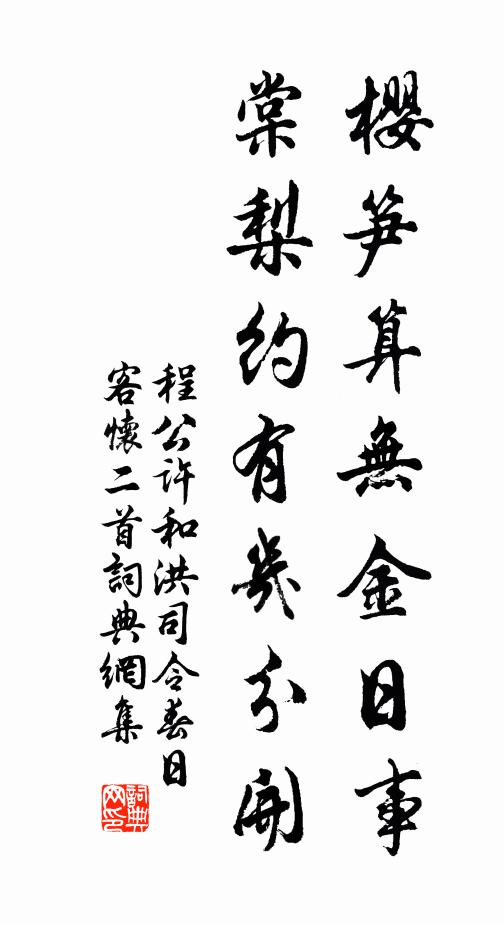 櫻笋算無金日事
棠梨約有幾分開
程公許和洪司令春日
客懷二首詞典網集
詞典網印